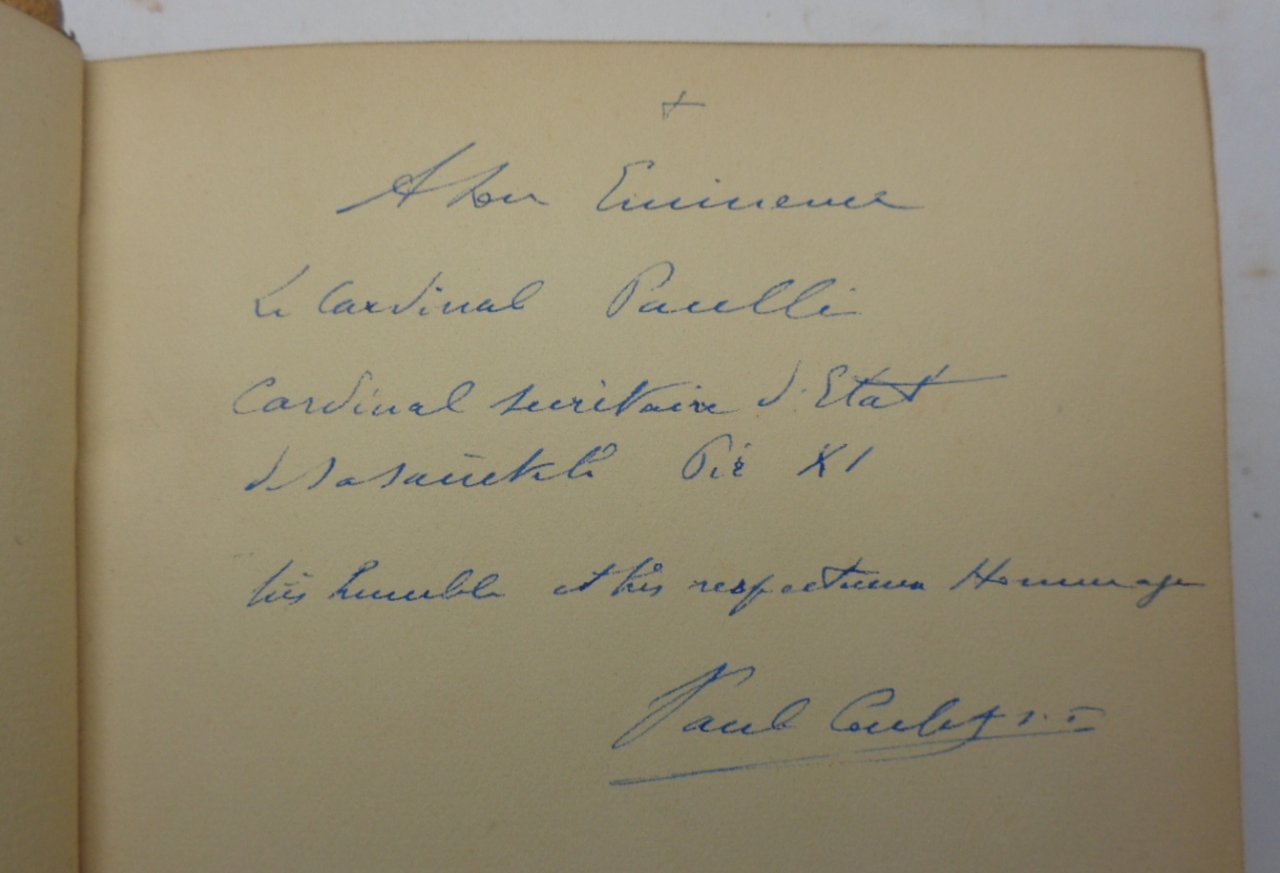 +
A Son Eminence
Le Cardinal Pacelli
Cardinal secrétaire d'Etat
de sa sainteté Pie XI
très humble et très respectueux Hommage
Paul